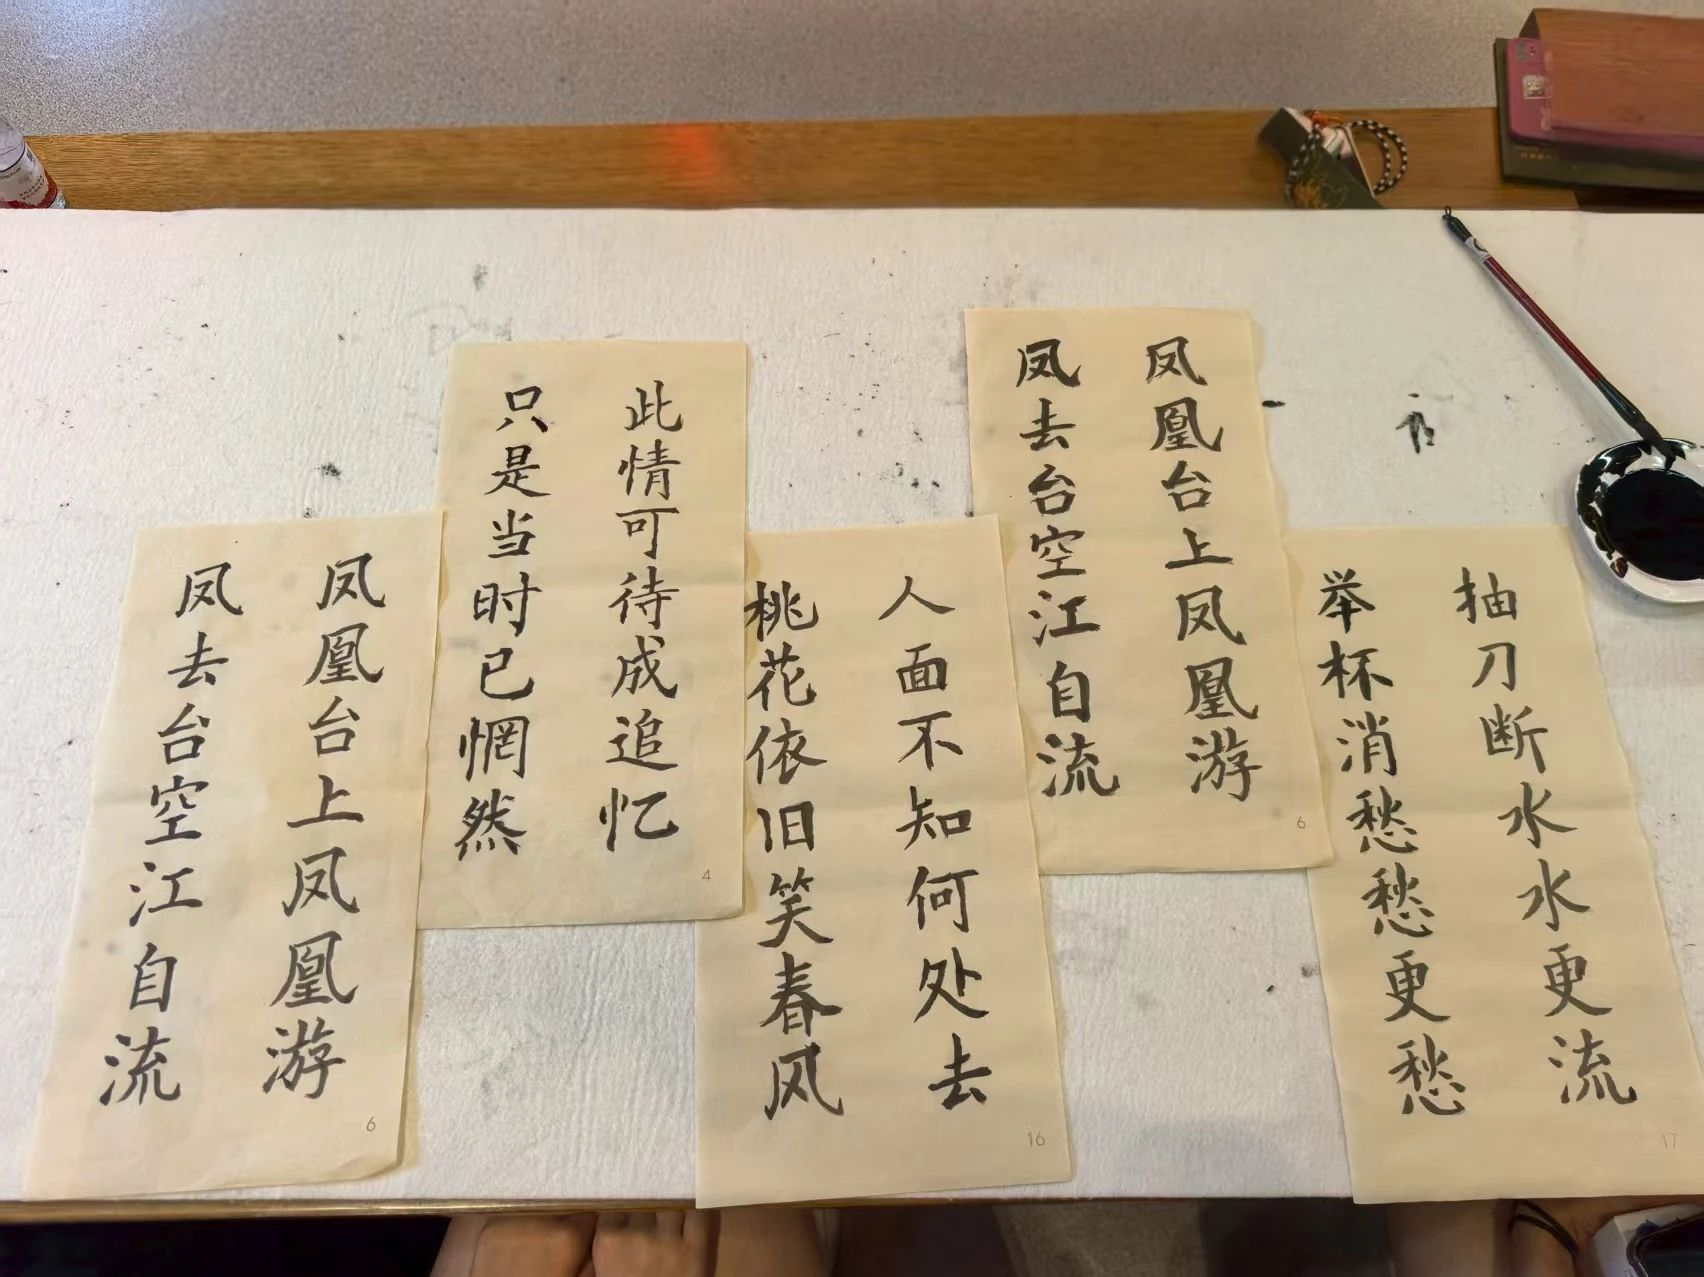 凤凰台上凤凰游
凤去台空江自流
6
此情可待成追忆
只是当时已惘然
4
人面不知何处去
桃花依旧笑春风
16
凤凰台上凤凰游
凤去台空江自流
6
抽刀断水水更流
举杯消愁愁更愁
17